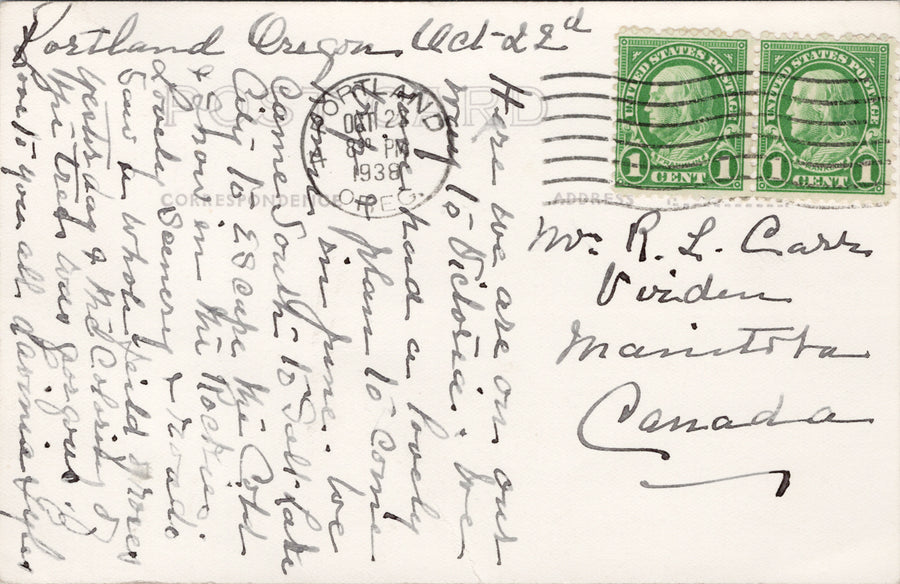 Portland Oregon Oct-22d
PORTLAND
OCT 23
8 PM
1938
OREG.
UNITED STATES POSTAGE
1 CENT 1
UNITED STATES POSTAGE
1 CENT 1
POST CARD
CORRESPONDENCE
ADDRESS
Here we are on our
way to Victoria. We
had a lovely
plan to come
home in June. We
Came South to Salt Lake
City to Escape the Cold
& snow in the Rockies.
Lovely Scenery & roads
Saw a whole feild roses
yesterday & the Coloring of
the trees was gorgous.
Love to you all
R. L. Carr
Virden
Manitoba
Canada